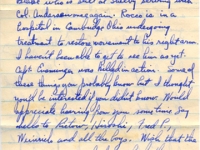 was still at
Col. again. Rocco is in a
Hospital in Cambridge Ohio undergoing
treatment to restore movement to his right arm.
I haven't been able to get to see him as yet.
Capt. was killed in action. Some of
these things you probably know but I thought
you'd be interested if you didn't know. Would
appreciate hearing from you some time. Say
hello to Fred P.,
and all the boys. that the